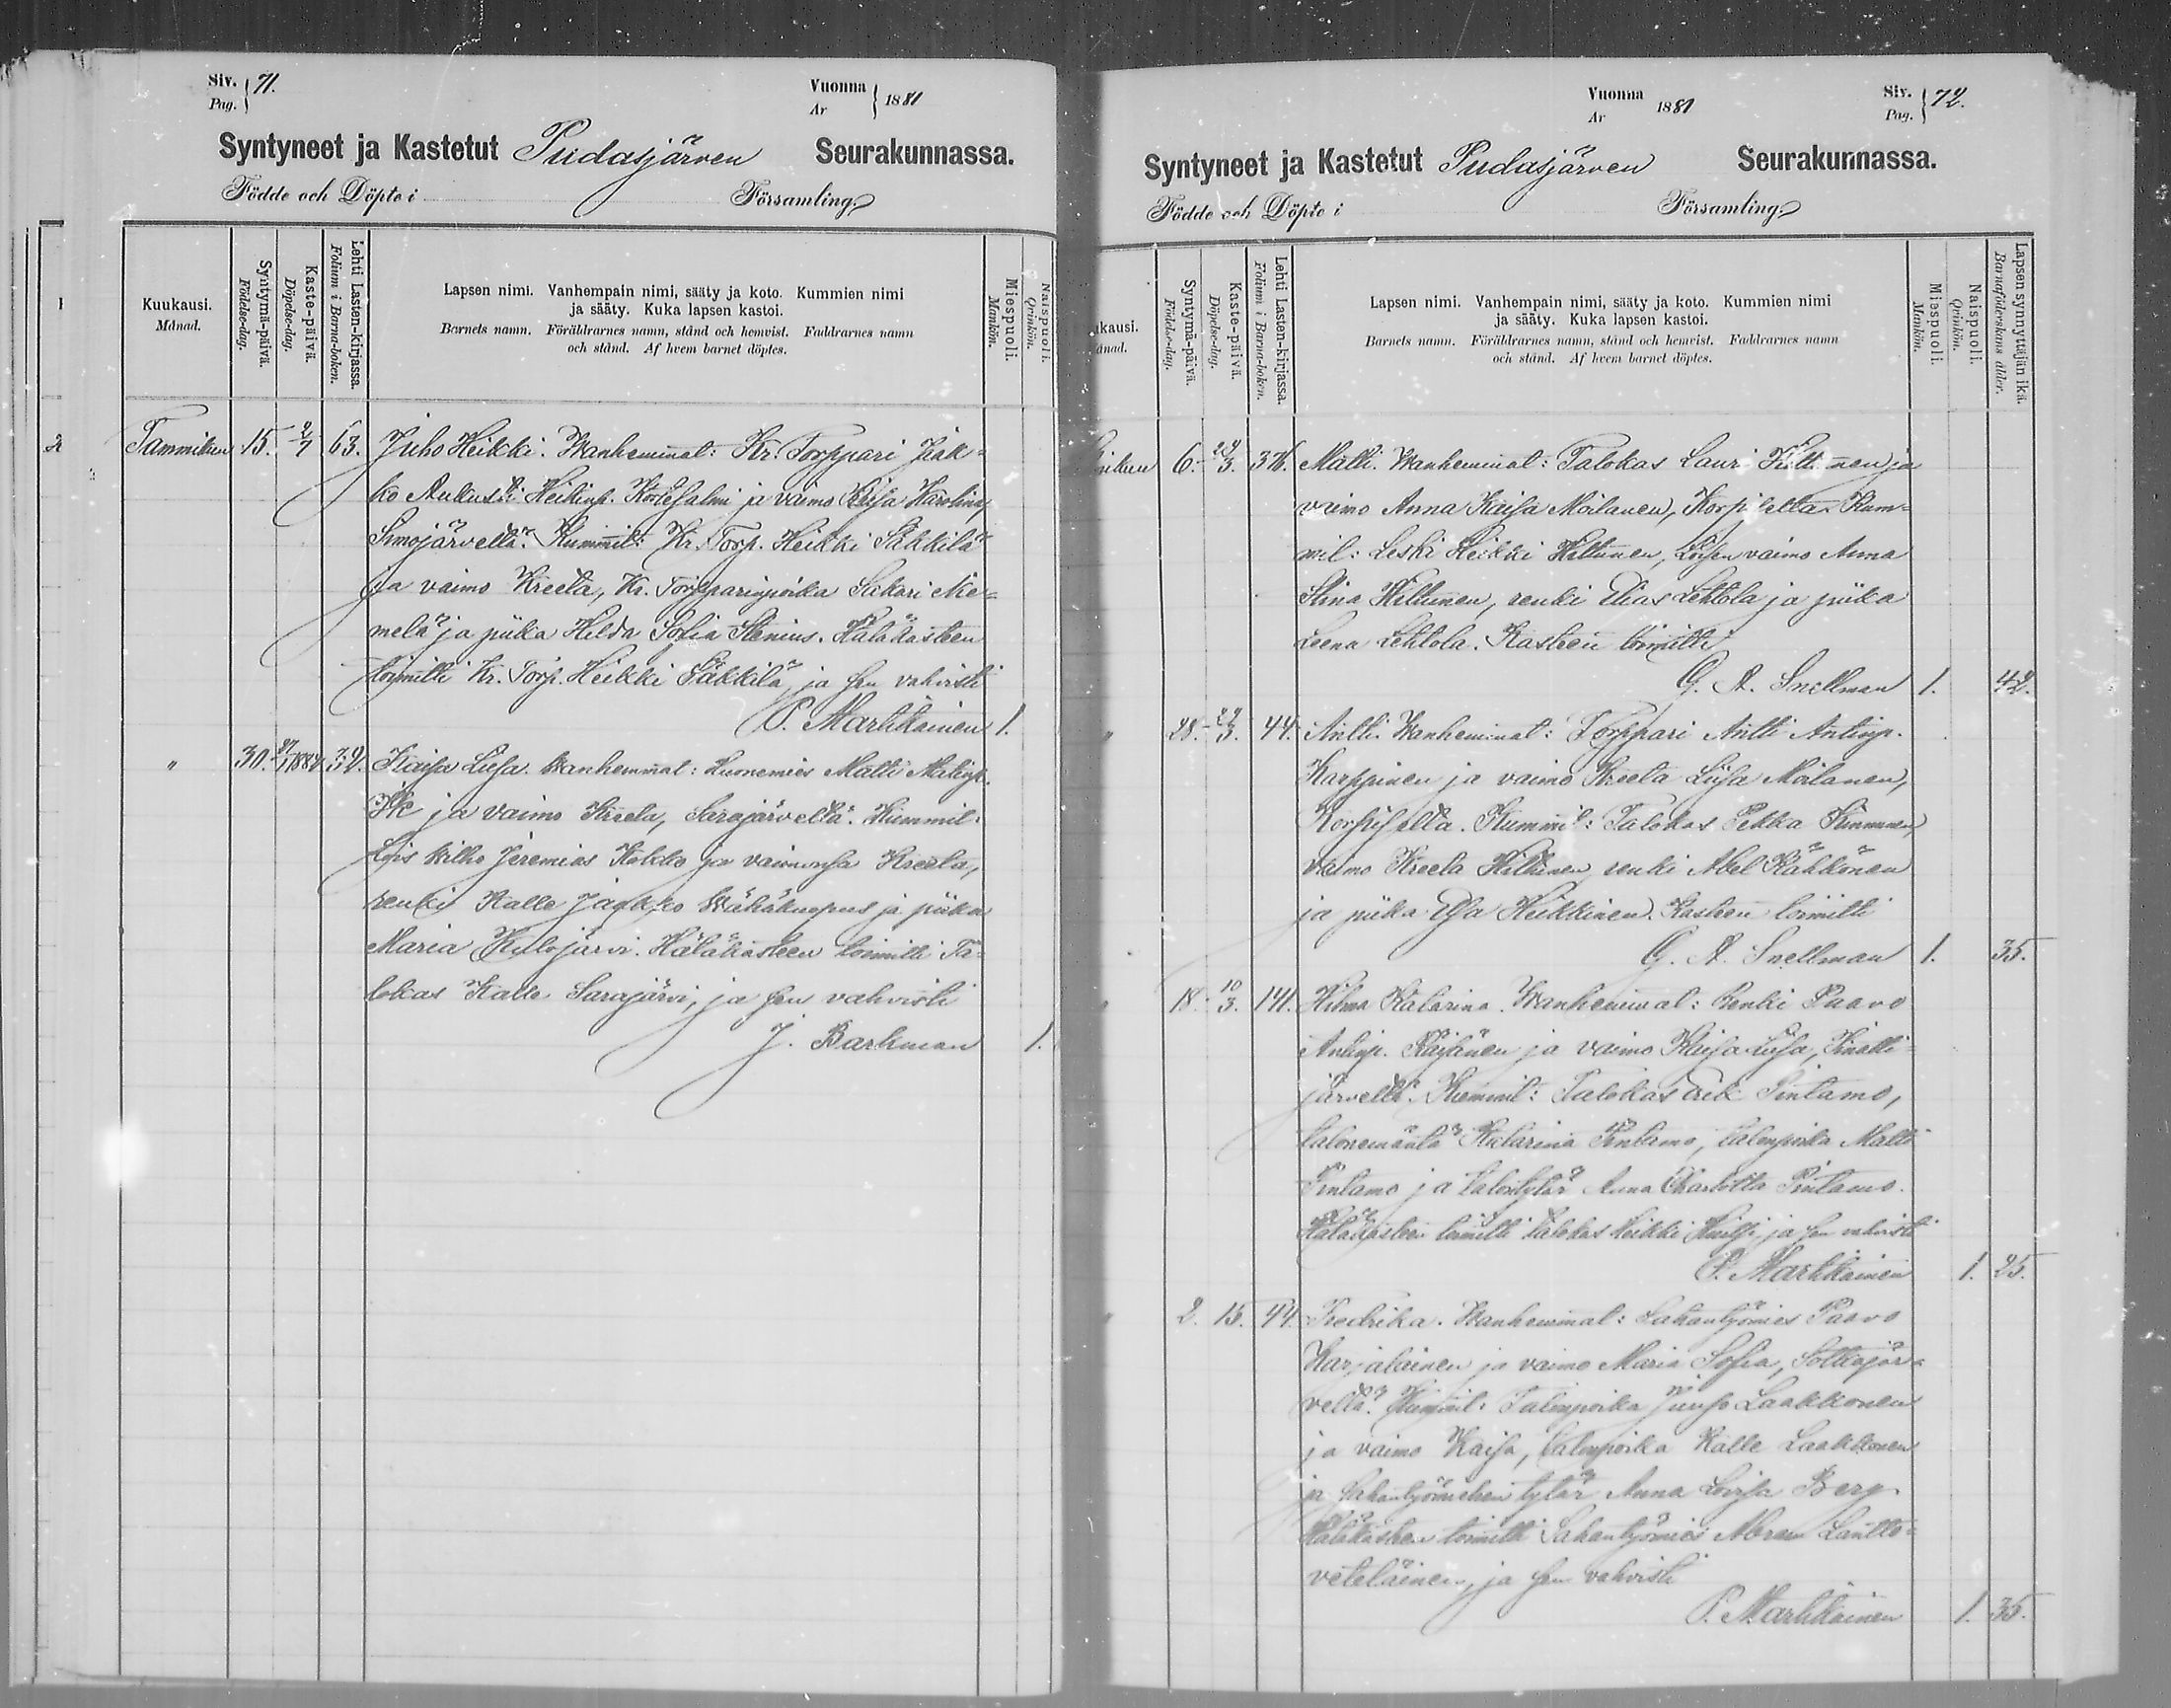 Siv. Pag. } 71.
Vuonna År } 1881
Syntyneet ja Kastetut Pudasjärven Seurakunnassa.
Födde och Döpte i Församling
Kuukausi. Månad.
Syntymä-päivä. Födelse-dag.
Kaste-päivä. Döpelse-dag.
Lehti Lasten-kirjassa. Folium i Barna-boken.
Lapsen nimi. Vanhempain nimi, sääty ja koto. Kummien nimi
ja sääty. Kuka lapsen kastoi.
Barnets namn. Föräldrarnes namn, stånd och hemvist. Faddrarnes namn
och stånd. Af hvem barnet döptes.
Miespuoli. Mankön.
Naispuoli. Qvinkön.
Tammikuu 15. 2/7 63. Juho Heikki. Wanhemmat: Kr. Torppari Jaak-
ko Aukusti Heikinp. KorteSalmi ja vaimo Karolina,
Simojärveltä. Kummit: Kr. Torp. Heikki Säkkilä
ja vaimo Kreeta, Kr. Torpparinpoika Sakari Nie-
melä ja piika Hilda Sofia Stenius. Hätäkasteen
toimitti Kr. Torp. Heikki Säkkilä, ja sen vahvisti
P. Martikainen 1.
" 30. 1882 32. Kaisa Liisa. Wanhemmat: Huonemies Matti Matinp.
Jk ja vaimo Kreeta, Sarajärveltä. Kummit:
Jeremias Kokko ja vaimonsa Kreeta,
renki Kalle Jaakko Wähäkuopus ja piika
Maria Kulojärvi. Hätäkasteen toimitti Ta-
lokas Kalle Sarajärvi, ja sen vahvisti
J. Barkman 1.
Vuonna År 1881
Siv. Pag. } 72.
Syntyneet ja Kastetut Pudasjärven Seurakunnassa.
Födde och Döpte i Församling
kausi. ånad.
Syntymä-päivä. Födelse-dag.
Kaste-päivä. Döpelse-dag.
Lehti Lasten-kirjassa. Folium i Barna-boken.
Lapsen nimi. Vanhempain nimi, sääty ja koto. Kummien nimi
ja sääty. Kuka lapsen kastoi.
Barnets namn. Föräldrarnes namn, stånd och hemvist. Faddrarnes namn
och stånd. Af hvem barnet döptes.
Miespuoli. Mankön.
Naispuoli. Qvinkön.
Lapsen synnyttäjän ikä. Barnaföderskans ålder.
6. 376. Matti. Wanhemmat: Talokas Lauri Hiltunen ja
vaimo Anna Kaisa Moilanen, Korpiselta. Kum-
mit: Leski Heikki Hiltunen, Loisen vaimo Anna
Stina Hiltunen, renki Elias Lehtola ja piika
Leena Lehtola. Kasteen toimitti
G. A. Snellman 1. 42.
28. 22/3. 44. Antti. Wanhemmat: Torppari Antti Antinp.
Karppinen ja vaimo Kreeta Liisa Moilanen,
Korpiselta. Kummit: Talokas Pekka Kinnunen,
vaimo Kreeta Hiltunen, renki Abel Kähkönen
ja piika Elsa Heikkinen. Kasteen toimitti
G. A. Snellman 1. 35.
18. 10/3. 141. Hilma Katarina. Wanhemmat: Renki Paavo
Antinp. ja vaimo Kaisa Liisa,
järveltä. Kummit: Talokas Erik Pintamo,
talonemäntä Katarina Pintamo, talonpoika Matti
Pintamo ja talontytär Anna Charlotta Pintamo.
Hätäkasteen toimitti talokas Heikki ja sen vahvisti
P. Martikainen 1. 25.
2. 15. 44. Fredrika. Wanhemmat: Sahantyömies Paavo
Karjalainen ja vaimo Maria Sofia, Sotkajär-
veltä. Kummit: Talonpoika Juuso Laakkonen
ja vaimo Kaisa, talonpoika Kalle Laakkonen
ja Sahantyömiehen tytär Anna Lovisa Berg.
Hätäkasteen toimitti Sahantyömies Abram Lautto-
veteläinen, ja sen vahvisti
P. Martikainen 1. 35.